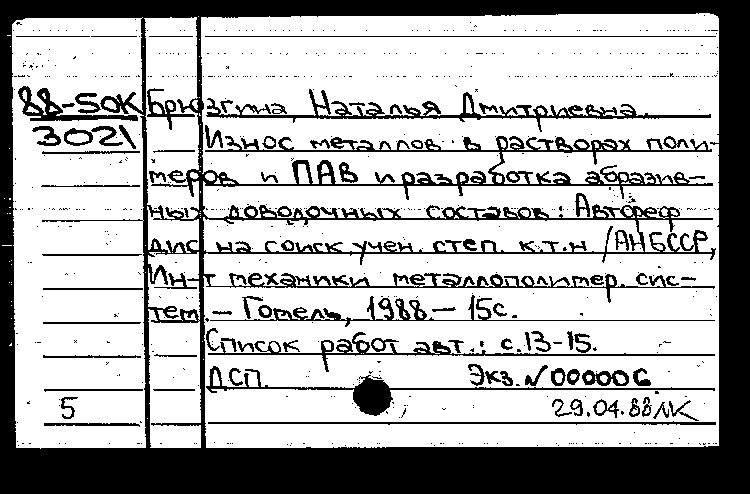 88-50К Брюзгина, Наталья Дмитриевна.
3021 Износ металлов в растворах поли-
меров и ПАВ и разработка абразив-
ных доводочных составов: Автореф
дис. на соиск. учен. степ. к.т.н. /АН БССР,
Ин-т механики металлополимер. сис-
тем. – Гомель, 1988. – 15с.
Список работ авт.: с. 13-15.
ДСП. Экз. N 000006.
5 29.04.88